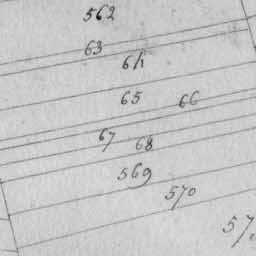 562
63
64
65
66
67
68
569
570